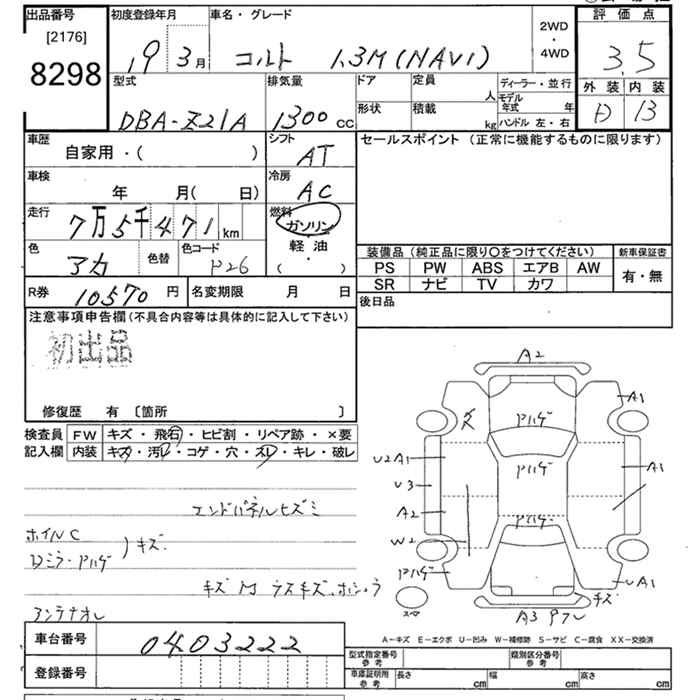 出品番号
[2176]
8298
初度登録年月
19
3月
車名・グレード
コルト 1.3M(NAVI)
2WD
・
4WD
評価点
3.5
外装 内装
D B
型式
DBA-Z21A
排気量
1300cc
ドア
形状
定員
人
積載
kg
ディーラー・並行
モデル年式 年
ハンドル 左・右
車歴
自家用・( )
シフト
AT
セールスポイント (正常に機能するものに限ります)
車検
年 月( 日)
冷房
AC
走行
7万5千471km
燃料
ガソリン
軽油
( ・ )
色
アカ
色替
色コード
P26
装備品(純正品に限り○をつけてください)
PS PW ABS エアB AW
SR ナビ TV カワ
新車保証書
有・無
R券 10570円
名変期限 月 日
後日品
注意事項申告欄(不具合内容等は具体的に記入して下さい)
初出品
修復歴 有 〔箇所 〕
検査員
記入欄
FW キズ・飛石・ヒビ割・リペア跡・×要
内装 キズ・汚レ・コゲ・穴・スレ・キレ・破レ
エンドパネルヒズミ
ホイルC
Dミラーアハゲ
)キズ
アンテナオレ
A2
A1
Pハゲ
U2A1
Pハゲ
A1
U3
A2
Pハゲ
W2
Pハゲ
UA1
スペア
キズ
A3
A-キズ E-エクボ U-凹み W-補修跡 S-サビ C-腐食 XX-交換済
車台番号
0403222
登録番号
型式指定番号
参考
類別区分番号
参考
車庫証明用
参考
長さ cm
幅 cm
高さ cm